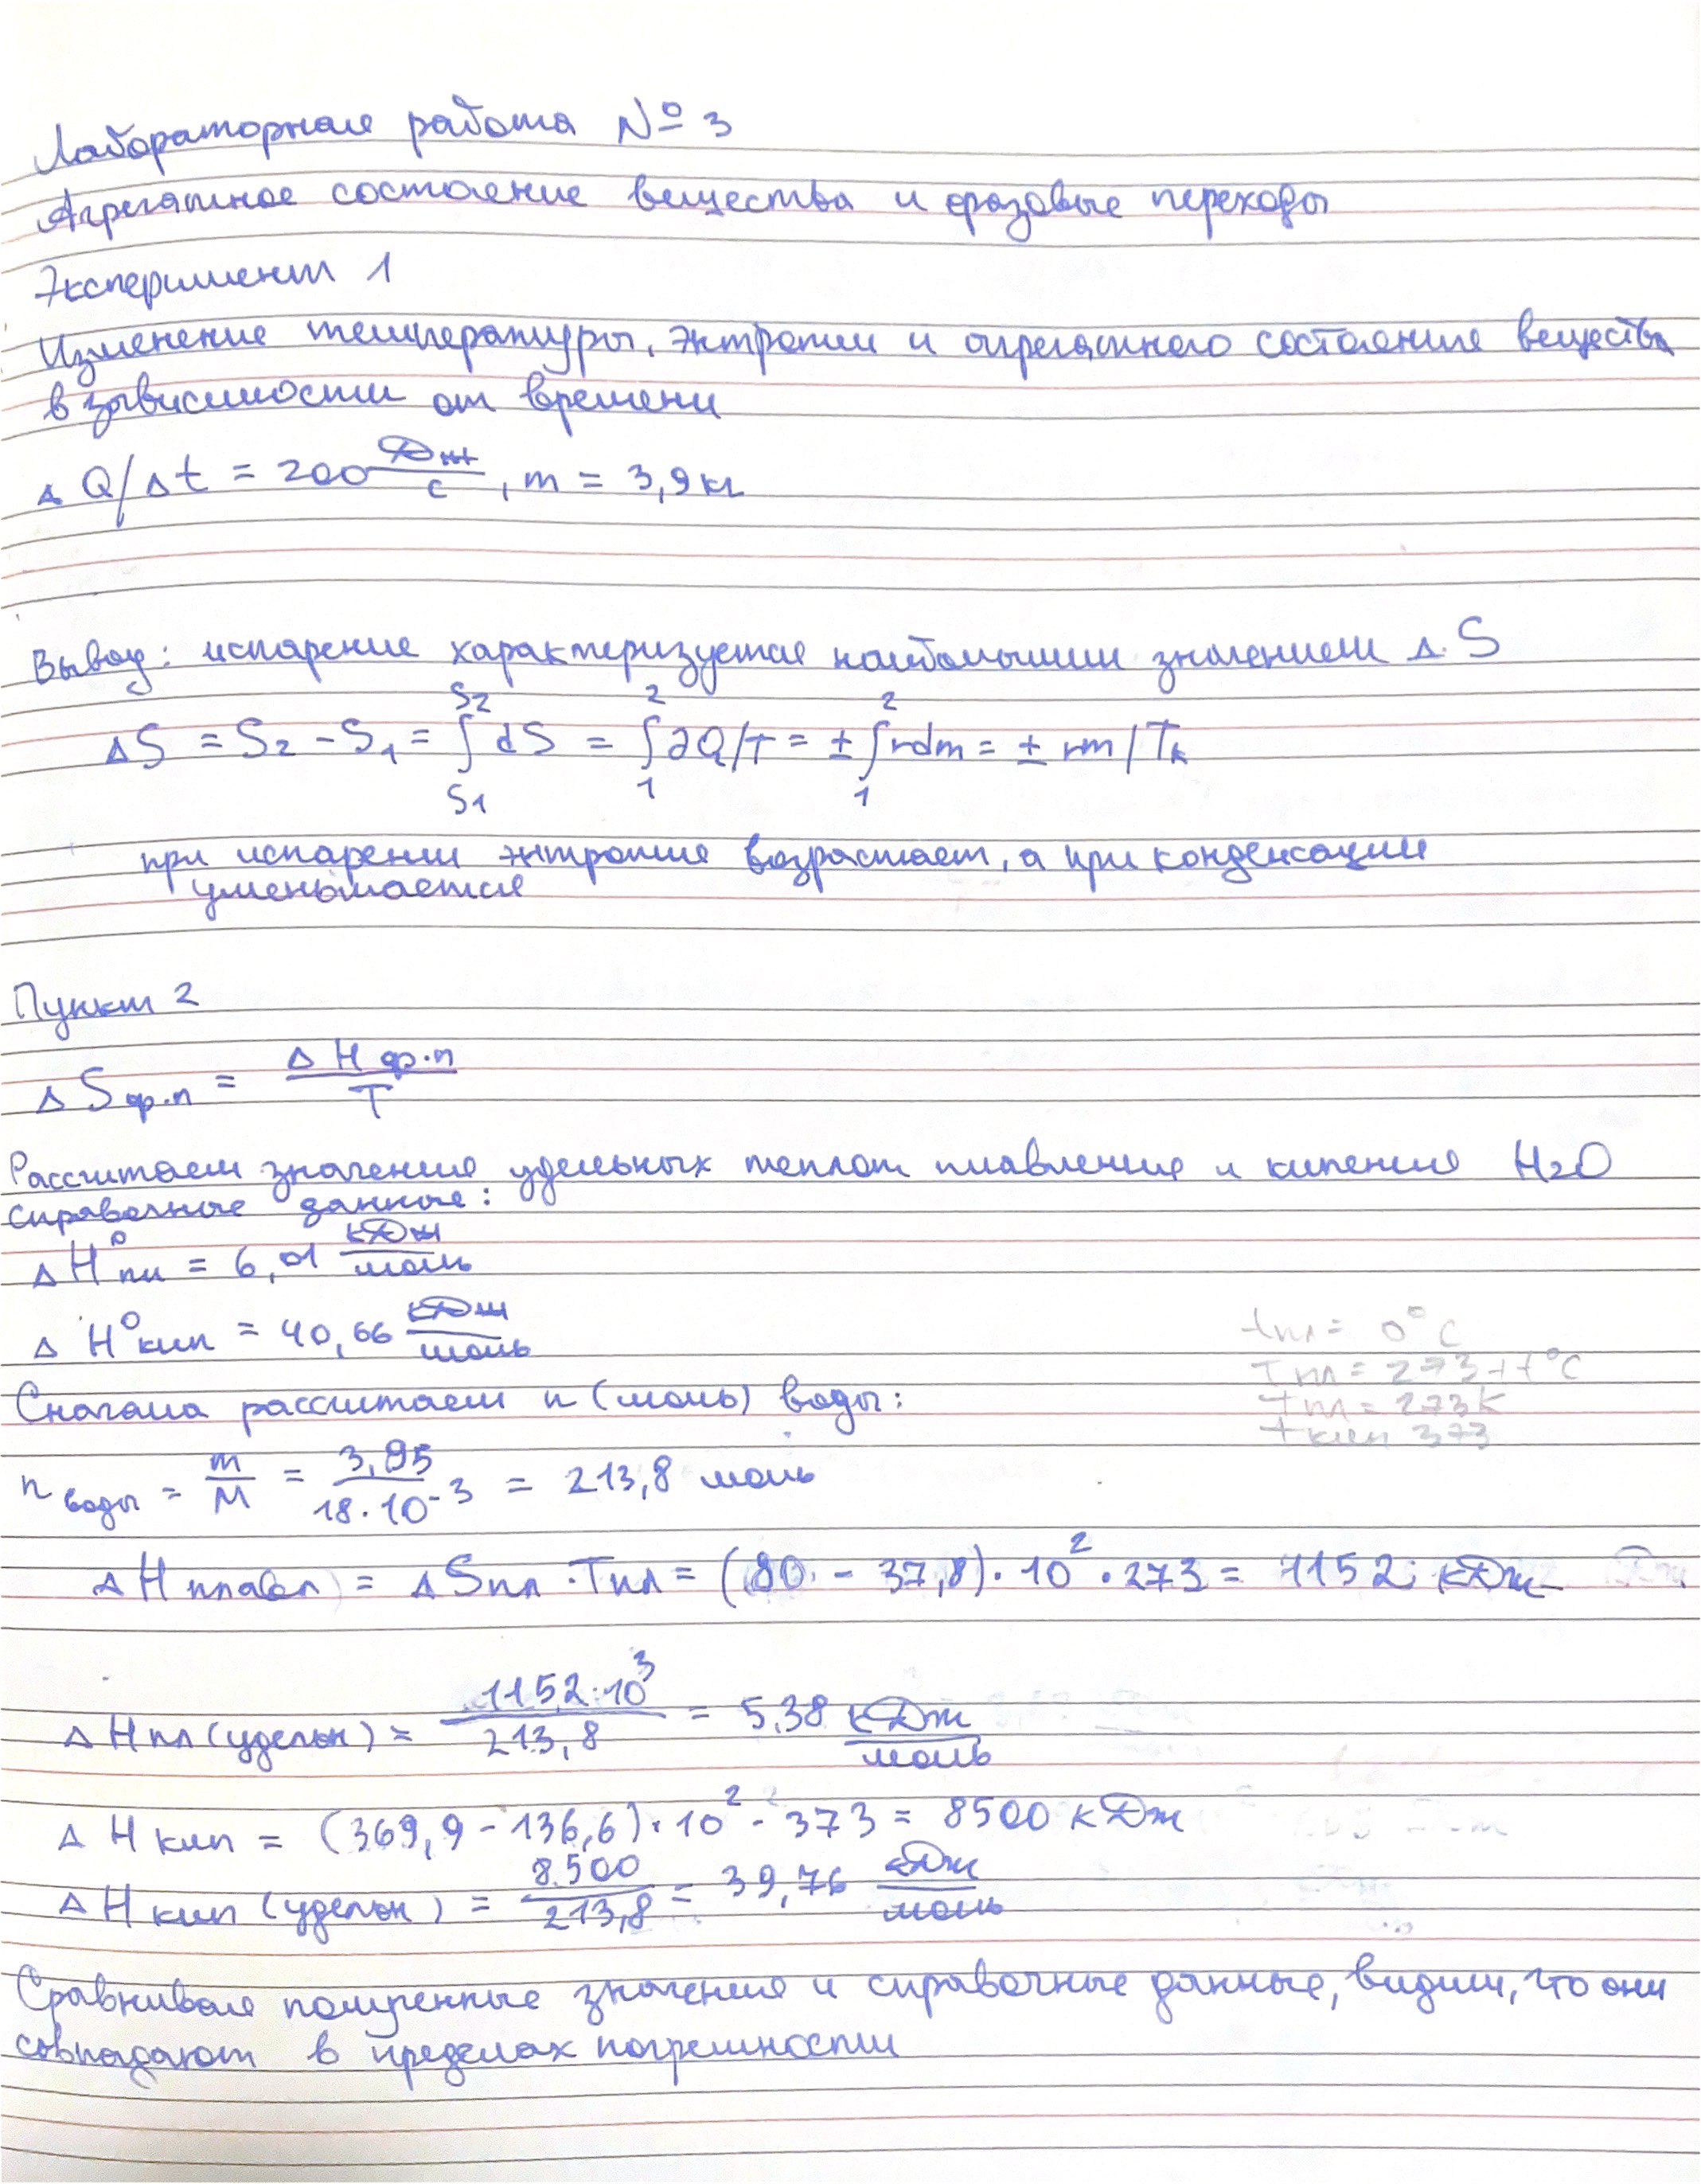 Лабораторная работа № 3
Агрегатное состояние вещества и фазовые переходы
Эксперимент 1
Изменение температуры, энтропии и агрегатного состояния вещества
в зависимости от времени
Δ Q/Δt = 200 Дж/с, m = 3,9 кг
Вывод: испарение характеризуется наибольшим значением Δ S
ΔS = S₂ - S₁ = ∫_{S1}^{S2} dS = ∫_1^2 ∂Q/T = ± ∫_1^2 rdm = ± rm/Tк
при испарении энтропия возрастает, а при конденсации
уменьшается
Пункт 2
Δ Sф.п = Δ Hф.п / T
Рассчитаем значения удельных теплот плавления и кипения H₂O
справочные данные:
Δ H⁰пл = 6,01 кДж/моль
Δ H⁰кип = 40,66 кДж/моль
tпл = 0°C
Tпл = 273 + t°C
Tпл = 273K
Tкип 373
Сначала рассчитаем n (моль) воды:
n воды = m/M = 3,85/18·10⁻³ = 213,8 моль
Δ Hплавл = ΔSпл · Tпл = (80 - 37,8) · 10² · 273 = 1152 кДж
Δ Hпл (удельн) = 1152·10³/213,8 = 5,38 кДж/моль
Δ Hкип = (369,9 - 136,6) · 10² · 373 = 8500 кДж
Δ Hкип (удельн) = 8500/213,8 = 39,76 кДж/моль
Сравнивая полученные значения и справочные данные, видим, что они
совпадают в пределах погрешности